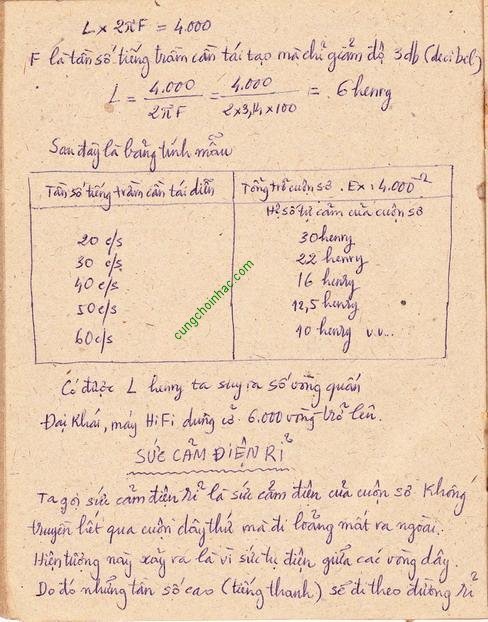 L x 2πF = 4.000
F là tần số tiếng trầm cần tái tạo mà chỉ giảm độ 3db (decibel)
L = 4.000 / 2πF = 4.000 / 2x3,14x100 = 6 henry
Sau đây là bảng tính mẫu
Tần số tiếng trầm cần tái diễn | Tổng trở cuộn sơ. Ex: 4.000 Ω
Hệ số tự cảm của cuộn sơ
20 c/s | 30 henry
30 c/s | 22 henry
40 c/s | 16 henry
50 c/s | 12,5 henry
60 c/s | 10 henry v.v...
cungchoinhac.com
Có được L henry ta suy ra số vòng quấn
Đại khái, máy HiFi dùng cỡ 6.000 vòng trở lên.
SỨC CẢM ĐIỆN RỈ
Ta gọi sức cảm điện rỉ là sức cảm điện của cuộn sơ không
truyền hết qua cuộn dây thứ mà đi loãng mất ra ngoài.
Hiện tượng này xảy ra là vì sức tụ điện giữa các vòng dây.
Do đó những tần số cao (tiếng thanh) sẽ đi theo đường rỉ